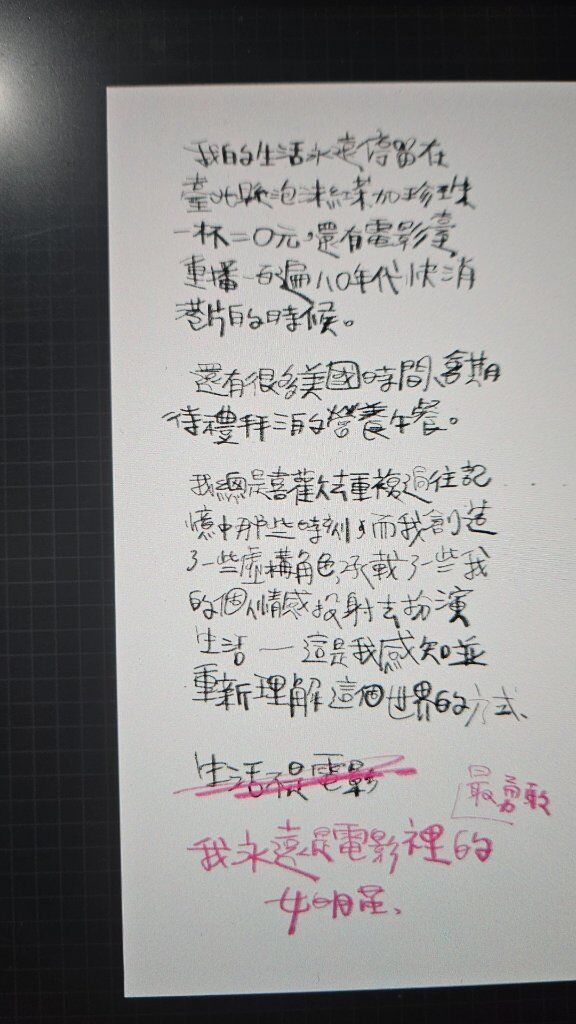 我的生活永遠停留在
臺北縣泡沫紅茶加珍珠
一杯二〇元，還有電影臺
重播一百遍八〇年代快消
港片的時候。
還有很多美國時間、會期
待禮拜三的營養午餐。
我總是喜歡去重複過往記
憶中那些時刻，而我創造
了一些虛構角色，承載了一些我
的個人情感投射去扮演
生活——這是我感知並
重新理解這個世界的方式、
生活不是電影
最勇敢
我永遠是電影裡的
女明星、